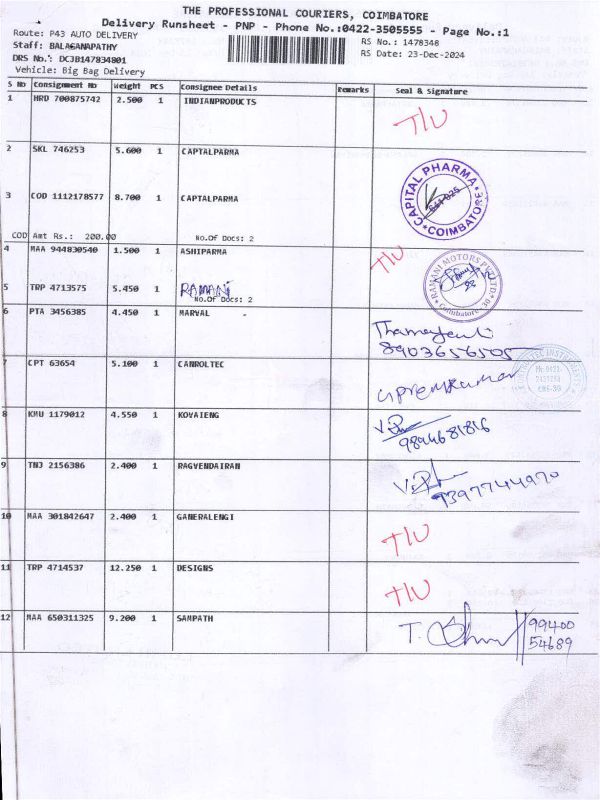 THE PROFESSIONAL COURIERS, COIMBATORE
Delivery Runsheet - PNP - Phone No.:0422-3505555 - Page No.:1
Route: P43 AUTO DELIVERY
RS No.: 1478348
Staff: BALAGANAPATHY
RS Date: 23-Dec-2024
DRS No.: DCJB147834801
Vehicle: Big Bag Delivery
S No Consignment No Weight PCS Consignee Details Remarks Seal & Signature
1 HRD 700875742 2.500 1 INDIANPRODUCTS T/U
2 SKL 746253 5.600 1 CAPTALPARMA
CAPITAL PHARMA COIMBATORE
3 COD 1112178577 8.700 1 CAPTALPARMA
COD Amt Rs.: 200.00 No.Of Docs: 2
4 MAA 944830540 1.500 1 ASHIPARMA T/U
RAMANI MOTORS PVT LTD Coimbatore - 30
5 TRP 4713575 5.450 1 RAMANI
No.Of Docs: 2
6 PTA 3456385 4.450 1 MARVAL
8903656505
7 CPT 63654 5.100 1 CANROLTEC
8 KMU 1179012 4.550 1 KOVAIENG
9894681816
9 TNJ 2156386 2.400 1 RAGVENDAIRAN
7397744970
10 MAA 301842647 2.400 1 GANERALENGI T/U
11 TRP 4714537 12.250 1 DESIGNS T/U
12 MAA 650311325 9.200 1 SAMPATH
99400
54689